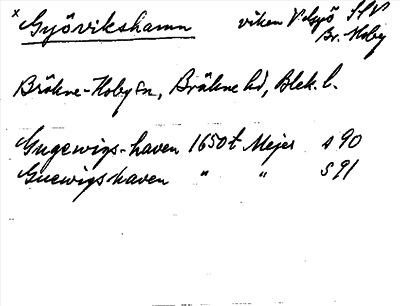 x Gyövikshamn viken V Gyö SV
Br. Hoby
Bräkne-Hoby sn, Bräkne hd, Blek. l.
Gugewigs-haven 1650t Mejer s 90
Guewigshaven " " S 91